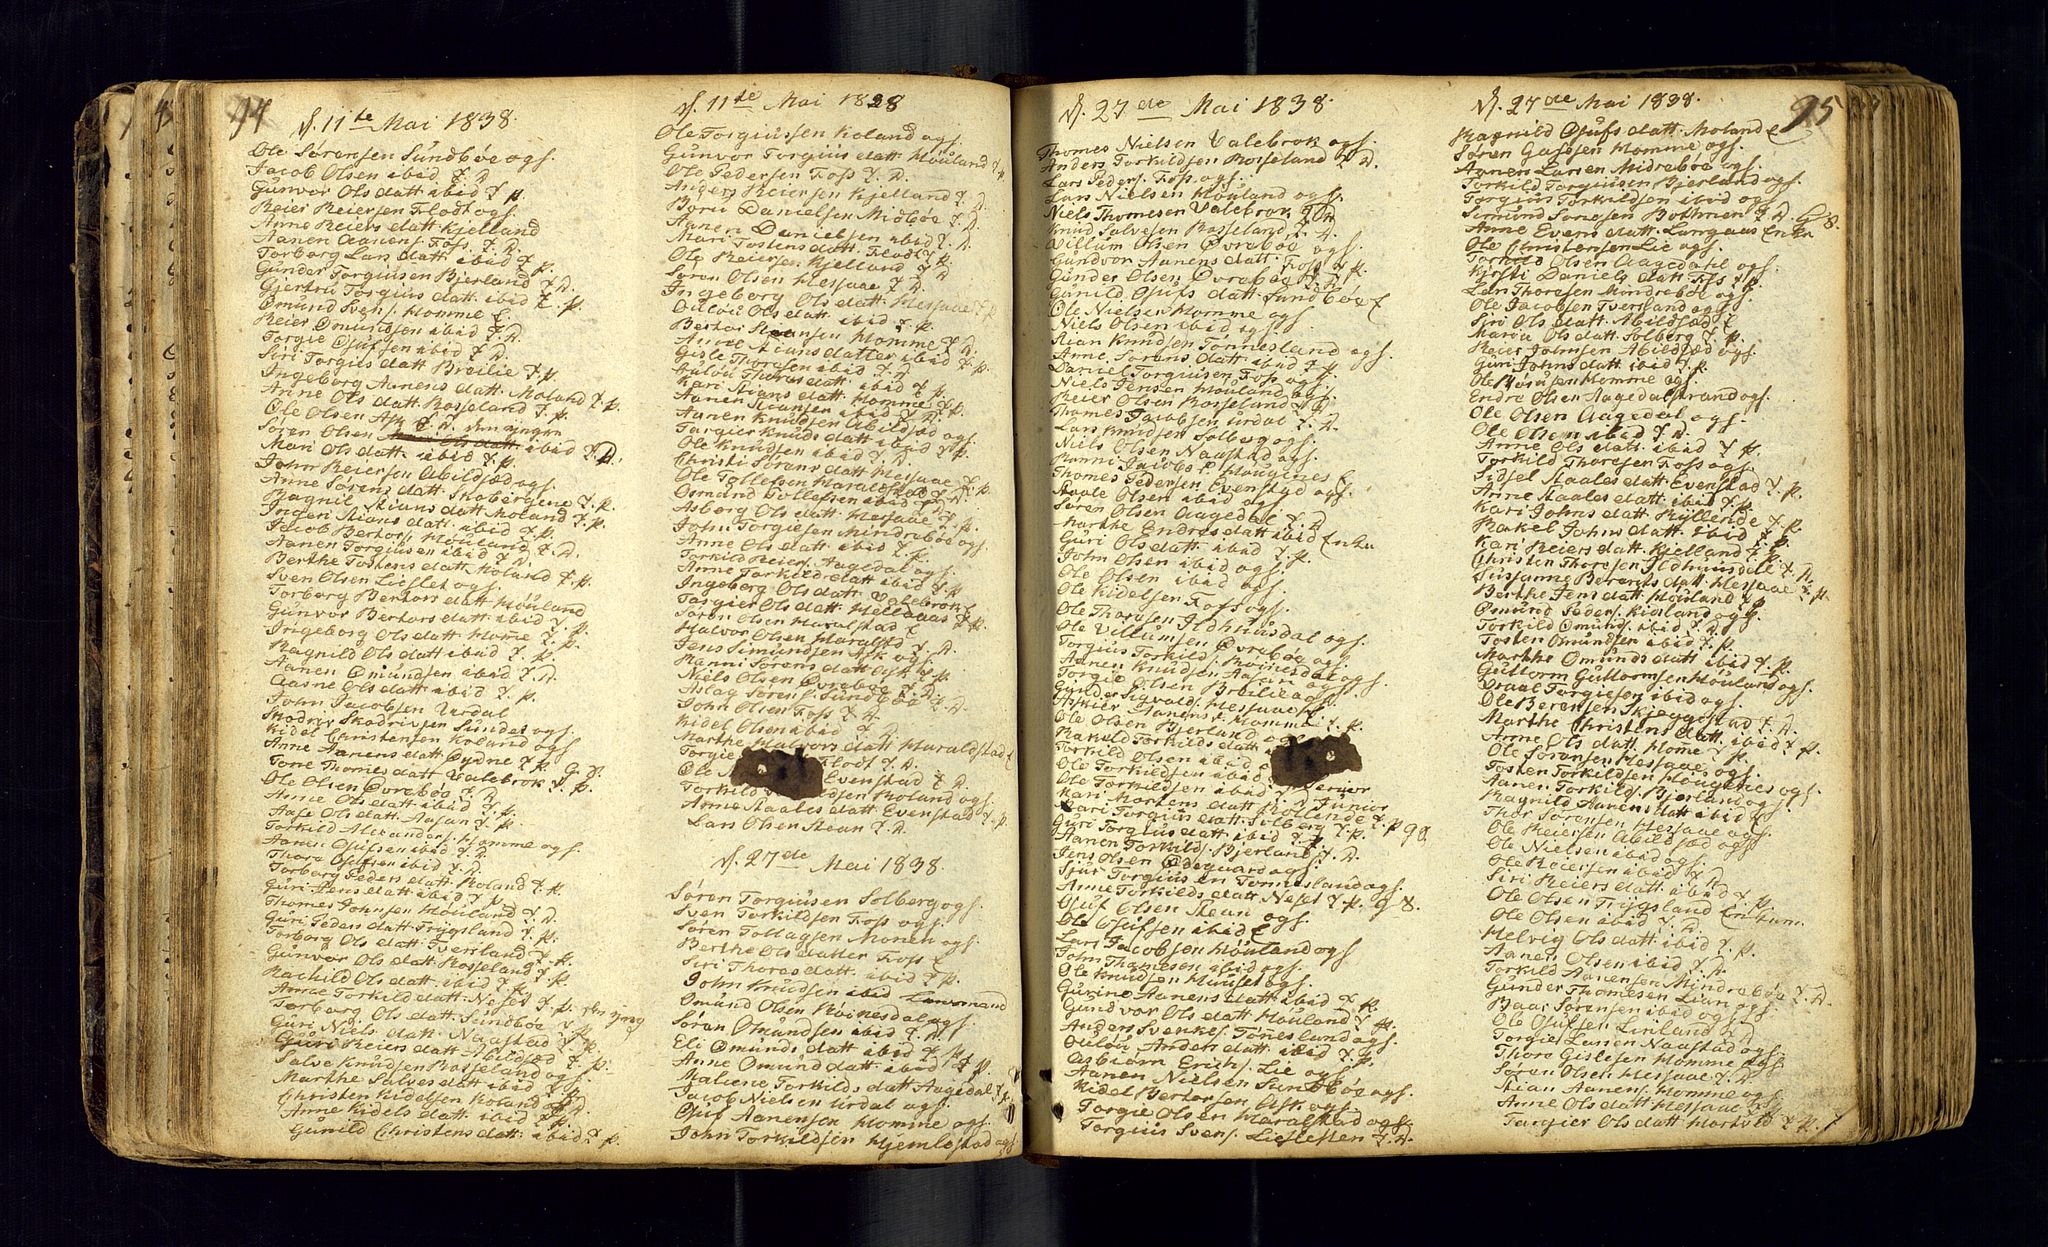 94
d. 11te Mai 1838.
Ole Sørensen Sundbøe ogs.
Jacob Olsen ibid F. D.
Gunvor Ols datt ibid F. p.
Reier Reiersen Flodt ogs.
Anne Reiers datt Kjelland
Aanen Aanens. Foss F. D.
Torborg Lars datt ibid F. p.
Gunder Torgiusen Bjerland F. D.
Gjertru Torgius datt ibid F. p.
Omund Svens. Homme E
Reier Omundsen ibid F. D.
Torgie Ojufsen ibid F. D.
Siri Torgus datt Breilie F. p.
Ingeborg Aanens datt Moland F. p.
Anne Ols datt Rosseland F. p.
Ole Olsen Ask F. D.
Søren Olsen ibid F. D.
Mari Ols datt ibid F. p.
John Reiersen Abildsæd ogs.
Anne Sørens datt Skobergene F. p.
Ragnil Stians datt Moland F. p.
Ingeri Stians datt ibid F. p.
Jacob Bertors. Houland F. D.
Aanen Torgiusen ibid F. D.
Berthe Tostens datt Roland F. p.
Sven Olsen Lieslet ogs.
Torborg Bertors datt Houland
Gunvor Bertors datt ibid F. p.
Ingeborg Ols datt Home F. p.
Ragnild Ols datt ibid F. p.
Aanen Omundsen ibid F. D.
Aasne Ols datt ibid F. p.
John Jacobsen Urdal
Skadser Skadrivsen Sundet ogs.
Kidel Christensen Roland ogs
Anne Aanens datt Øydne F. p. G. 8.
Tone Thomes datt Valebrok F. p.
Ole Olsen Øvrebøe F. D.
Anne Ols datt ibid F. p.
Aase Ols datt Aasan F. p.
Torkild Alexanders. Homme ogs.
Aanen Ojufsen ibid F. D.
Thore Ojufsen ibid F. D.
Torborg Peders datt Roland F. p.
Guri Jens datt ibid F. p.
Thomes Johnsen Houland F. D.
Guri Peders datt Trygsland F. p.
Torborg Ols datt Tversland F. p.
Gunvor Ols datt Rosseland F. p.
Rachild Ols datt ibid F. p.
Anne Torkild datt Neset F. p.
Torborg Ols datt Sundbøe F. p.
Guri Niels datt Naastad F. p.
Guri Reiers datt Abildsæd F. p.
Salve Knudsen Rosseland ogs.
Marthe Salves datt ibid F. p.
Christen Kiddelsen Roland F. D.
Anne Kidels datt ibid F. p.
Gunild Christens datt ibid F. p.
d. 11te Mai 1838
Ole Torgiussen Roland ogs.
Gunvor Torgius datt Houland F. p.
Ole Pedersen Foss F. D.
Anders Reiersen Kjelland F. D.
Boru Danielsen Midbøe F. D.
Aanen Danielsen ibid F. D.
Mari Tostens datt Flodt F. p.
Ole Reiersen Kjelland F. D.
Søren Olsen Hessaae F. D.
Ingeborg Ols datt Hessaae F. p.
Oulou Ols datt ibid F. p.
Bertor Steansen Homme F. D.
Anne Stians datter ibid F. p.
Gisle Thorsen ibid F. D.
Aulou Thores datt ibid F. p.
Kari Stians datt Homme F. p.
Aanen Steansen ibid F. D.
Aanen Knudsen Abildsæd ogs.
Targier Knuds datt ibid F. p.
Ole Knudsen ibid F. D.
Christi Sørens datt Hessaae F. p.
Ole Tollefsen Haraldstad F. D.
Osmund Tollefsen ibid F. D.
Asborg Ols datt Hessaae F. p.
John Torgiesen Mindrebøe ogs.
Anne Ols datt ibid F. p.
Torkild Reiers. Aagedal ogs.
Anne Torkild datt ibid F. p.
Ingeborg Ols datt Valebrok E
Targier Ols datt Helleaas F. p.
Søren Olsen Haralstad E
Halvor Olsen Haralstd F. D.
Jens Simundsen Ask ogs.
Ranni Sørens datt Ask F. p.
Niels Olsen Øvrebøe F. D.
Aslag Sørens. Sundbøe F. D.
John Olsen Foss F. D.
Kidel Olsen ibid F. D.
Marthe Halvors datt Haraldstad E
Torgie Flodt F. D.
Ole Evenstad F. D.
Torkild Roland ogs.
Anne Staales datt Evenstad F. p.
Lars Olsen Stean F. D.
d. 27de Mai 1838.
Søren Torgiusen Solberg ogs.
Sven Torkildsen Foss ogs.
Søren Tollagsen Monen ogs.
Berthe Ols datter Foss E
Siri Thores datt ibid F. p.
John Knudsen ibid Lænsmand
Omund Olsen Roinesdal ogs.
Søren Omundsen ibid F. D.
Eli Omunds datt ibid F. p.
Anne Omund datt ibid F. p.
Maliene Torkilds datt Aagedal F. p.
Jacob Nielsen Urdal ogs.
Ojuf Aanensen Homme ogs.
John Torkildsen Hjemlestad ogs.
d. 27de Mai 1838.
Thomes Nielsen Valebrok ogs.
Anders Torkildsen Rosseland F. D.
Lars Peders. Foss ogs.
Lars Nielsen Houland ogs.
Niels Thomesen Valebrok F. D.
Knud Salvesen Rosseland F. D.
Villum Olsen Øvrebøe ogs.
Gundvor Aanens datt. Foss F. p.
Gunder Olsen Øvrebøe F. D.
Gunild Ojufs datt Sundbøe E
Ole Nielsen Homme ogs
Niels Olsen ibid ogs.
Stian Knudsen Tønnesland ogs.
Anne Sørens datt ibid F. p.
Daniel Torgiusen Foss ogs.
Niels Jensen Houland ogs.
Reier Olsen Rosseland F. D.
Thomes Jacobsen Urdal F. D.
Lars Knudsen Solberg ogs.
Niels Olsen Naastad ogs.
Ranni Jacobs D Hougenes E
Thomes Pedersen Evenstad ogs.
Staale Olsen ibid ogs.
Søren Olsen Aagedal F. D.
Marthe Endres datt ibid Enke
Guri Ols datt ibid F. p.
John Olsen ibid ogs.
Ole Olsen ibid ogs.
Ole Kidelsen Foss ogs.
Ole Thoresen Ildhuusdal ogs.
Ole Villumsen Øvrebøe ogs.
Torgius Torkilds. Roinesdal ogs.
Aanen Knudsen Aasan ogs.
Torgie Olsen Breilie ogs.
Gunder Sigvalds. Hessaae
Askier Aanens d. Homme F. p.
Ole Olsen Bjerland ogs.
Rakild Torkilds datt
Torkild Olsen ibid
Ole Torkildsen ibid Senior
Ole Torkildsen ibid F. D. Junior
Kari Mortens datt Røllende F. p. G. 8.
Kari Torgius datt Solberg F. p.
Guri Torgius datt ibid F. p.
Aanen Torkilds. Bjerland F. D.
Jens Olsen Ødeguard ogs.
Sjur Torgiusen Tønnesland ogs.
Anne Torkilds datt Neset F. p. G. 8.
Ojuf Olsen Stean ogs.
Ole Ojufsen ibid E
Lars Jacobsen Houland ogs
John Thomesen ibid ogs.
Ole Knudsen Huuset ogs.
Gurine Aanens datt ibid F. p.
Gundvor Ols datt Houland F. p.
Anders Svenkes. Tønnesland ogs.
Oulou Anders datt ibid F. p.
Asbiørn Erichs. Lie ogs.
Aanen Nielsen Sundbøe ogs.
Kidel Bertorsen Ask ogs.
Torgie Olsen Haralstad ogs.
Torgius Svens. Liesletten F. D.
d. 27de Mai 1838.
95
Ragnild Ojufs datt. Moland E
Søren Gabsen Homme ogs.
Aanen Larsen Midrebøe ogs.
Torkild Torgiusen Bjerland ogs.
Torgius Torkildsen ibid ogs
Simund Torgsen Bothnen F. D. G. 8.
Anne Evens datt Langaas Enke
Ole Christensen Lie ogs.
Torkild Olsen Aagedahl ogs.
Kjersti Daniels datt Foss F. p.
Lars Thoresen Mindrebøe ogs.
Ole Jacobsen Tversland ogs.
Siri Ols datt Abildsæd E
Maria Ols datt Solberg F. p.
Reier Johnsen Abildsæd ogs.
Guri Johns datt ibid F. p.
Ole Boruesen Homme ogs.
Endre Olsen Aagedalstrand ogs.
Ole Olsen Aagedal ogs.
Ole Olsen ibid F. D.
Anne Ols datt ibid F. p.
Torkild Thoresen Foss ogs.
Sidsel Staales datt Evenstad F. p.
Anne Staales datt ibid F. p.
Kari Johns datt Ryllende F. p.
Rakel Johns datt ibid F. p.
Kari Reiers datt Kjelland F. p.
Christen Thoresen Ildhuusdal F. D.
Susanne Berents datt Hessaae F. p.
Berthe Jens datt Houland F. p.
Omund Peders. Roland ogs.
Torkild Omunds. ibid F. D.
Tosten Omundsen ibid F. D.
Marthe Omunds datt ibid F. p.
Guttorm Guttormsen Houland ogs.
Draal Torgiesen ibid ogs.
Ole Berensen Skjeggestad F. D.
Marthe Christens datt ibid F. p.
Anne Ols datt. Home F. p.
Ole Sørensen Hessaae ogs.
Tosten Torkildsen Hougenes ogs.
Aanen Torkilds. Bjerland ogs.
Ragnild Aanens datt ibid E
Thor Sørensen Hessaae ogs.
Ole Reiersen Abildsæd ogs.
Ole Nielsen ibid ogs.
Ole Reiersen ibid F. D.
Siri Reiers datt ibid F. p.
Ole Olsen Trygsland Enkem.
Ole Olsen ibid F. D.
Helvig Ols datt ibid F. p.
Aanen Olsen ibid F. D.
Torkild Aanensen Mindrebøe F. D.
Gunder Thomesen Lian ogs.
Baar Sørensen ibid ogs.
Ole Ojufsen Linland F. D.
Torgie Larsen Naastad ogs.
Thore Gislesen Homme ogs.
Søren Olsen Hessaae F. D.
Stian Aanens. Homme ogs.
Anne Ols datt Hessaae F. p.
Targier Ols datt F. p.